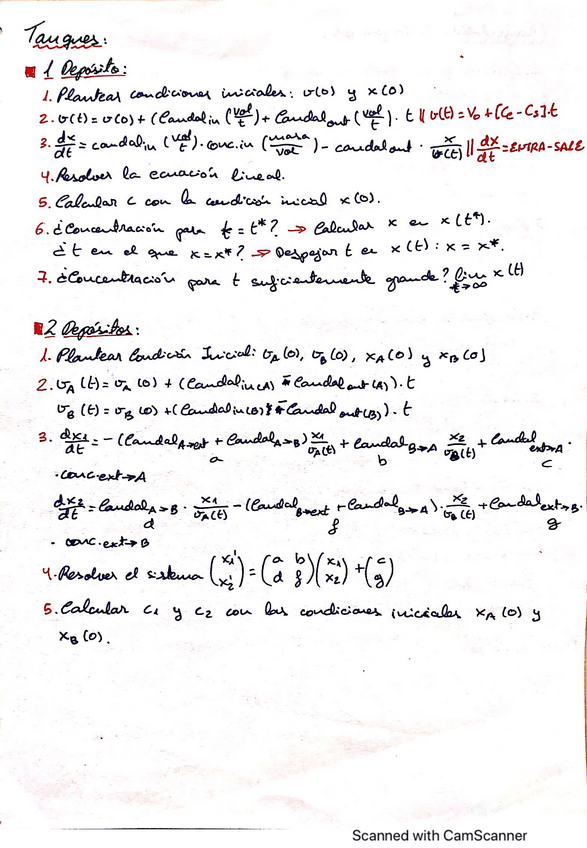 Tanques:
1 Depósito:
1. Plantear condiciones iniciales: v(0) y x(0)
2. v(t) = v(0) + (Caudal in (vol/t) + Caudal out (vol/t). t || v(t) = V₀ + [Ce - Cs].t
3. dx/dt = caudal in (vol/t). conc.in (masa/vol) - caudal out · x/v(t) || dx/dt = ENTRA-SALE
4. Resolver la ecuación lineal.
5. Calcular c con la condición inicial x(0).
6. ¿Concentración para t = t*? → Calcular x en x(t*).
¿t en el que x = x*? → Despejar t en x(t): x = x*.
7. ¿Concentración para t suficientemente grande? lim t→∞ x(t)
2 Depósitos:
1. Plantear Condición Inicial: v_A(0), v_B(0), x_A(0) y x_B(0)
2. v_A(t) = v_A(0) + (Caudal in(A) - Caudal out(A)). t
v_B(t) = v_B(0) + (Caudal in(B) - Caudal out(B)). t
3. dx1/dt = -(Caudal A→ext + Caudal A→B) x1/v_A(t) + Caudal B→A x2/v_B(t) + Caudal ext→A ·
a b c
· conc. ext→A
dx2/dt = Caudal A→B · x1/v_A(t) - (Caudal B→ext + Caudal B→A) · x2/v_B(t) + Caudal ext→B ·
d f g
· conc. ext→B
4. Resolver el sistema (x1' x2') = (a b d f)(x1 x2) + (c g)
5. Calcular c1 y c2 con las condiciones iniciales x_A(0) y
x_B(0).
Scanned with CamScanner